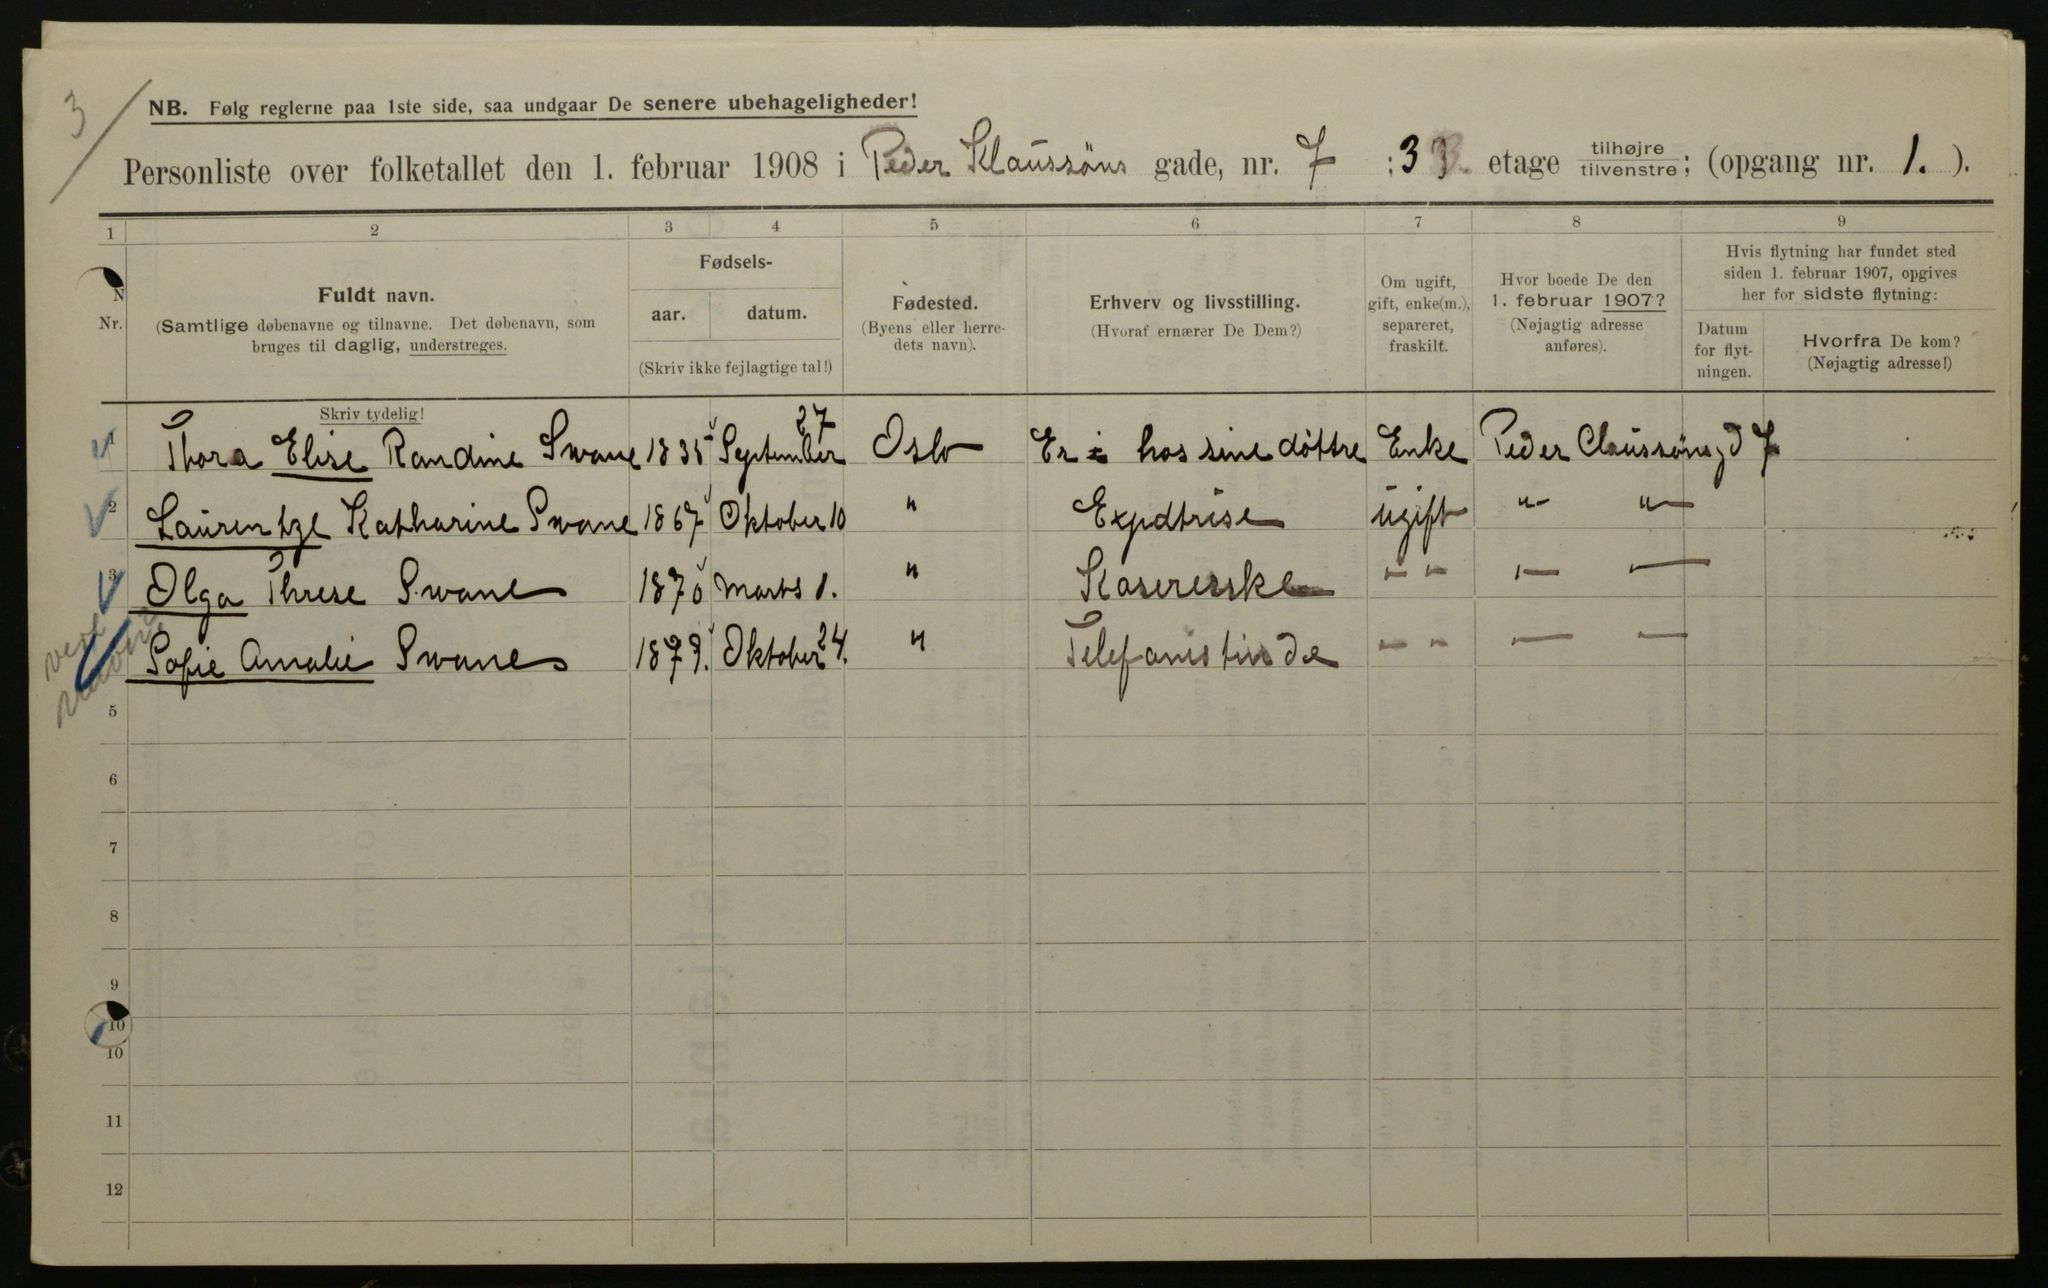 3
NB. Følg reglerne paa 1ste side, saa undgaar De senere ubehageligheder!
Personliste over folketallet den 1. februar 1908 i Peder Klaussöns gade, nr. 7 : 3 etage tilhøjre tilvenstre; (opgang nr. 1. ).
1 2 3 4 5 6 7 8 9
Nr.
Fuldt navn.
(Samtlige døbenavne og tilnavne. Det døbenavn, som
bruges til daglig, understreges.
Fødsels-
aar. datum.
(Skriv ikke fejlagtige tal!)
Fødested.
(Byens eller herre-
dets navn).
Erhverv og livsstilling.
(Hvoraf ernærer De Dem?)
Om ugift,
gift, enke(m.),
separeret,
fraskilt.
Hvor boede De den
1. februar 1907?
(Nøjagtig adresse
anføres).
Hvis flytning har fundet sted
siden 1. februar 1907, opgives
her for sidste flytning:
Datum
for flyt-
ningen.
Hvorfra De kom?
(Nøjagtig adresse!)
Skriv tydelig!
1 Thora Elise Randine Swane 1835 September 27 Oslo Er hos sine döttre Enke Peder Claussönsgd 7
2 Laurentze Katharine Swane 1867 Oktober 10 " Expdtrise ugift " "
3 Olga Threse Swane 1870 Marts 1. " Kasererske " " " "
Sofie Amalie Swane 1879. Oktober 24. " Telefanistinde " " " "
5
6
7
8
9
10
10
11
12